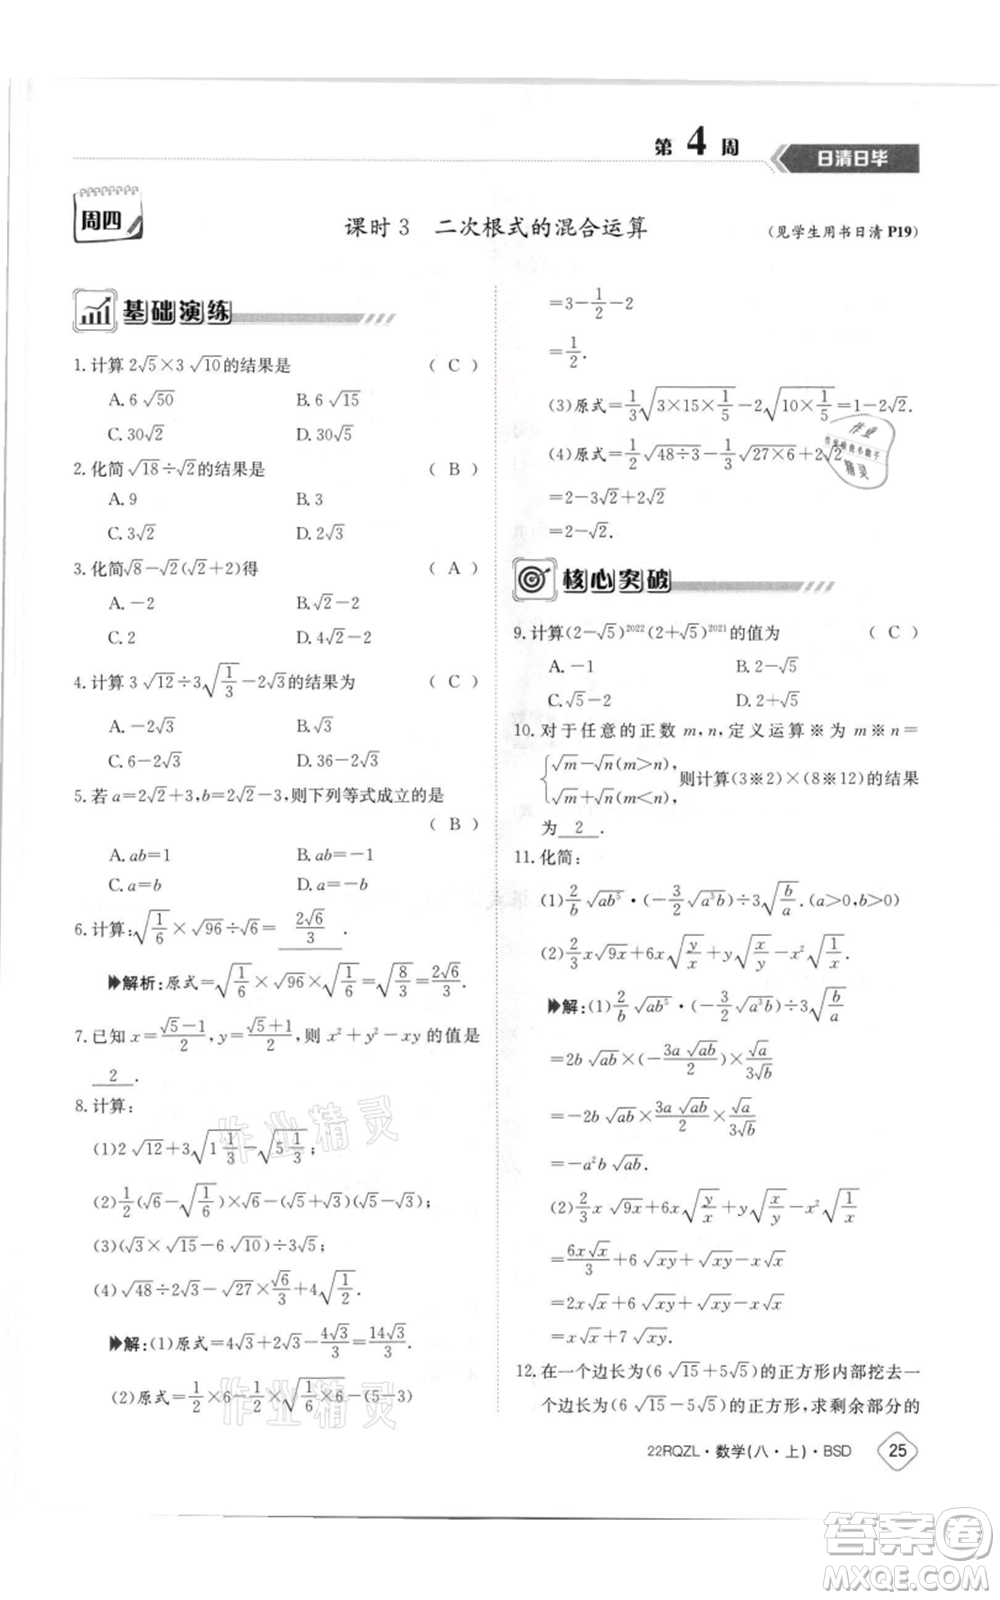 第 4 周
日清日毕
周四
课时 3 二次根式的混合运算
(见学生用书日清 P19)
基础演练
1. 计算 2√5×3√10的结果是 ( C )
A. 6√50 B. 6√15
C. 30√2 D. 30√5
2. 化简 √18÷√2的结果是 ( B )
A. 9 B. 3
C. 3√2 D. 2√3
3. 化简√8−√2(√2+2)得 ( A )
A. −2 B. √2−2
C. 2 D. 4√2−2
4. 计算 3√12÷3√(1/3)−2√3的结果为 ( C )
A. −2√3 B. √3
C. 6−2√3 D. 36−2√3
5. 若 a=2√2+3,b=2√2−3,则下列等式成立的是
( B )
A. ab=1 B. ab=−1
C. a=b D. a=−b
6. 计算:√(1/6)×√96÷√6= 2√6/3 .
解析:原式=√(1/6)×√96×√(1/6)=√(8/3)=2√6/3.
7. 已知 x=(√5−1)/2,y=(√5+1)/2,则 x²+y²−xy 的值是
2 .
8. 计算:
(1)2√12+3√(1 1/3)−√(5 1/3);
(2)1/2(√6−√(1/6))×√6−(√5+√3)(√5−√3);
(3)(√3×√15−6√10)÷3√5;
(4)√48÷2√3−√27×√6/3+4√(1/2).
解:(1)原式=4√3+2√3−4√3/3=14√3/3.
(2)原式=1/2×6−1/2×√(1/6×6)−(5−3)
=3−1/2−2
=1/2.
(3)原式=1/3√(3×15×1/5)−2√(10×1/5)=1−2√2.
(4)原式=1/2√(48÷3)−1/3√(27×6)+2√2
=2−3√2+2√2
=2−√2.
核心突破
9. 计算(2−√5)²⁰²²(2+√5)²⁰²¹的值为 ( C )
A. −1 B. 2−√5
C. √5−2 D. 2+√5
10. 对于任意的正数 m,n,定义运算※为 m※n=
{√m−√n(m>n), √m+√n(m<n), 则计算(3※2)×(8※12)的结果
为 2 .
11. 化简:
(1)2/b√(ab⁵)·(−3/2√(a³b))÷3√(b/a).(a>0,b>0)
(2)2/3x√(9x)+6x√(y/x)+y√(x/y)−x²√(1/x).
解:(1)2/b√(ab⁵)·(−3/2√(a³b))÷3√(b/a)
=2b√(ab)×(−3a√(ab)/2)×√a/(3√b)
=−2b√(ab)×3a√(ab)/2×√a/(3√b)
=−a²b√(ab).
(2)2/3x√(9x)+6x√(y/x)+y√(x/y)−x²√(1/x)
=6x√x/3+6√(xy)+√(xy)−x√x
=2x√x+6√(xy)+√(xy)−x√x
=x√x+7√(xy).
12. 在一个边长为(6√15+5√5)的正方形内部挖去一
个边长为(6√15−5√5)的正方形,求剩余部分的
22RQZL·数学(八·上)·BSD 25
作业精灵
作业精灵
答案圈
MXQE.COM